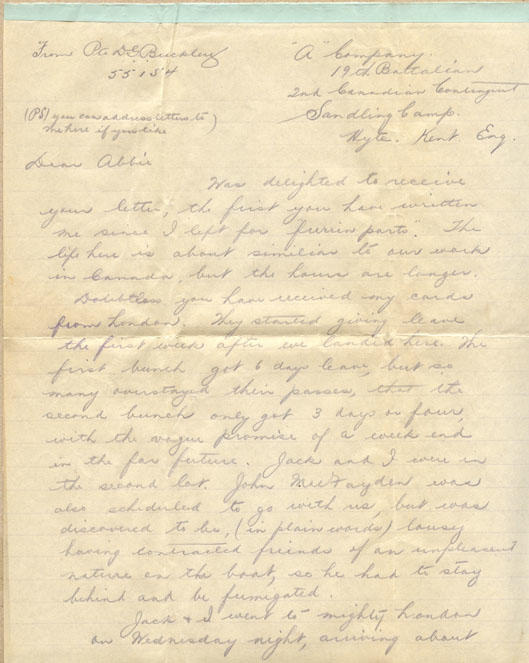 "From Pte D G Buckley
55154
"A" Company.
19th Battalian
2nd Canadian Contingent
Sandling Camp.
Hyte. Kent. Eng.
(PS) you can address letters to)
me here if you like
Dear Abbie
Was delighted to receive
your letter, the first you have written
me since I left for "furrin parts". The
life here is about similiar to our work
in Canada, but the hours are longer.
Doubtless you have received my cards
from London. They started giving leave
the first week after we landed here. The
first bunch got 6 days leave, but so
many overstayed their passes, that the
second bunch only got 3 days or four,
with the vague promise of a week end
in the far future. Jack and I were in
the second lot. John MacFayden was
also scheduled to go with us, but was
discovered to be, (in plain words) lousy
having contracted friends of an unpleasent
nature on the boat, so he had to stay
behind and be fumigated.
Jack & I went to mighty London
on Wednesday night, arriving about